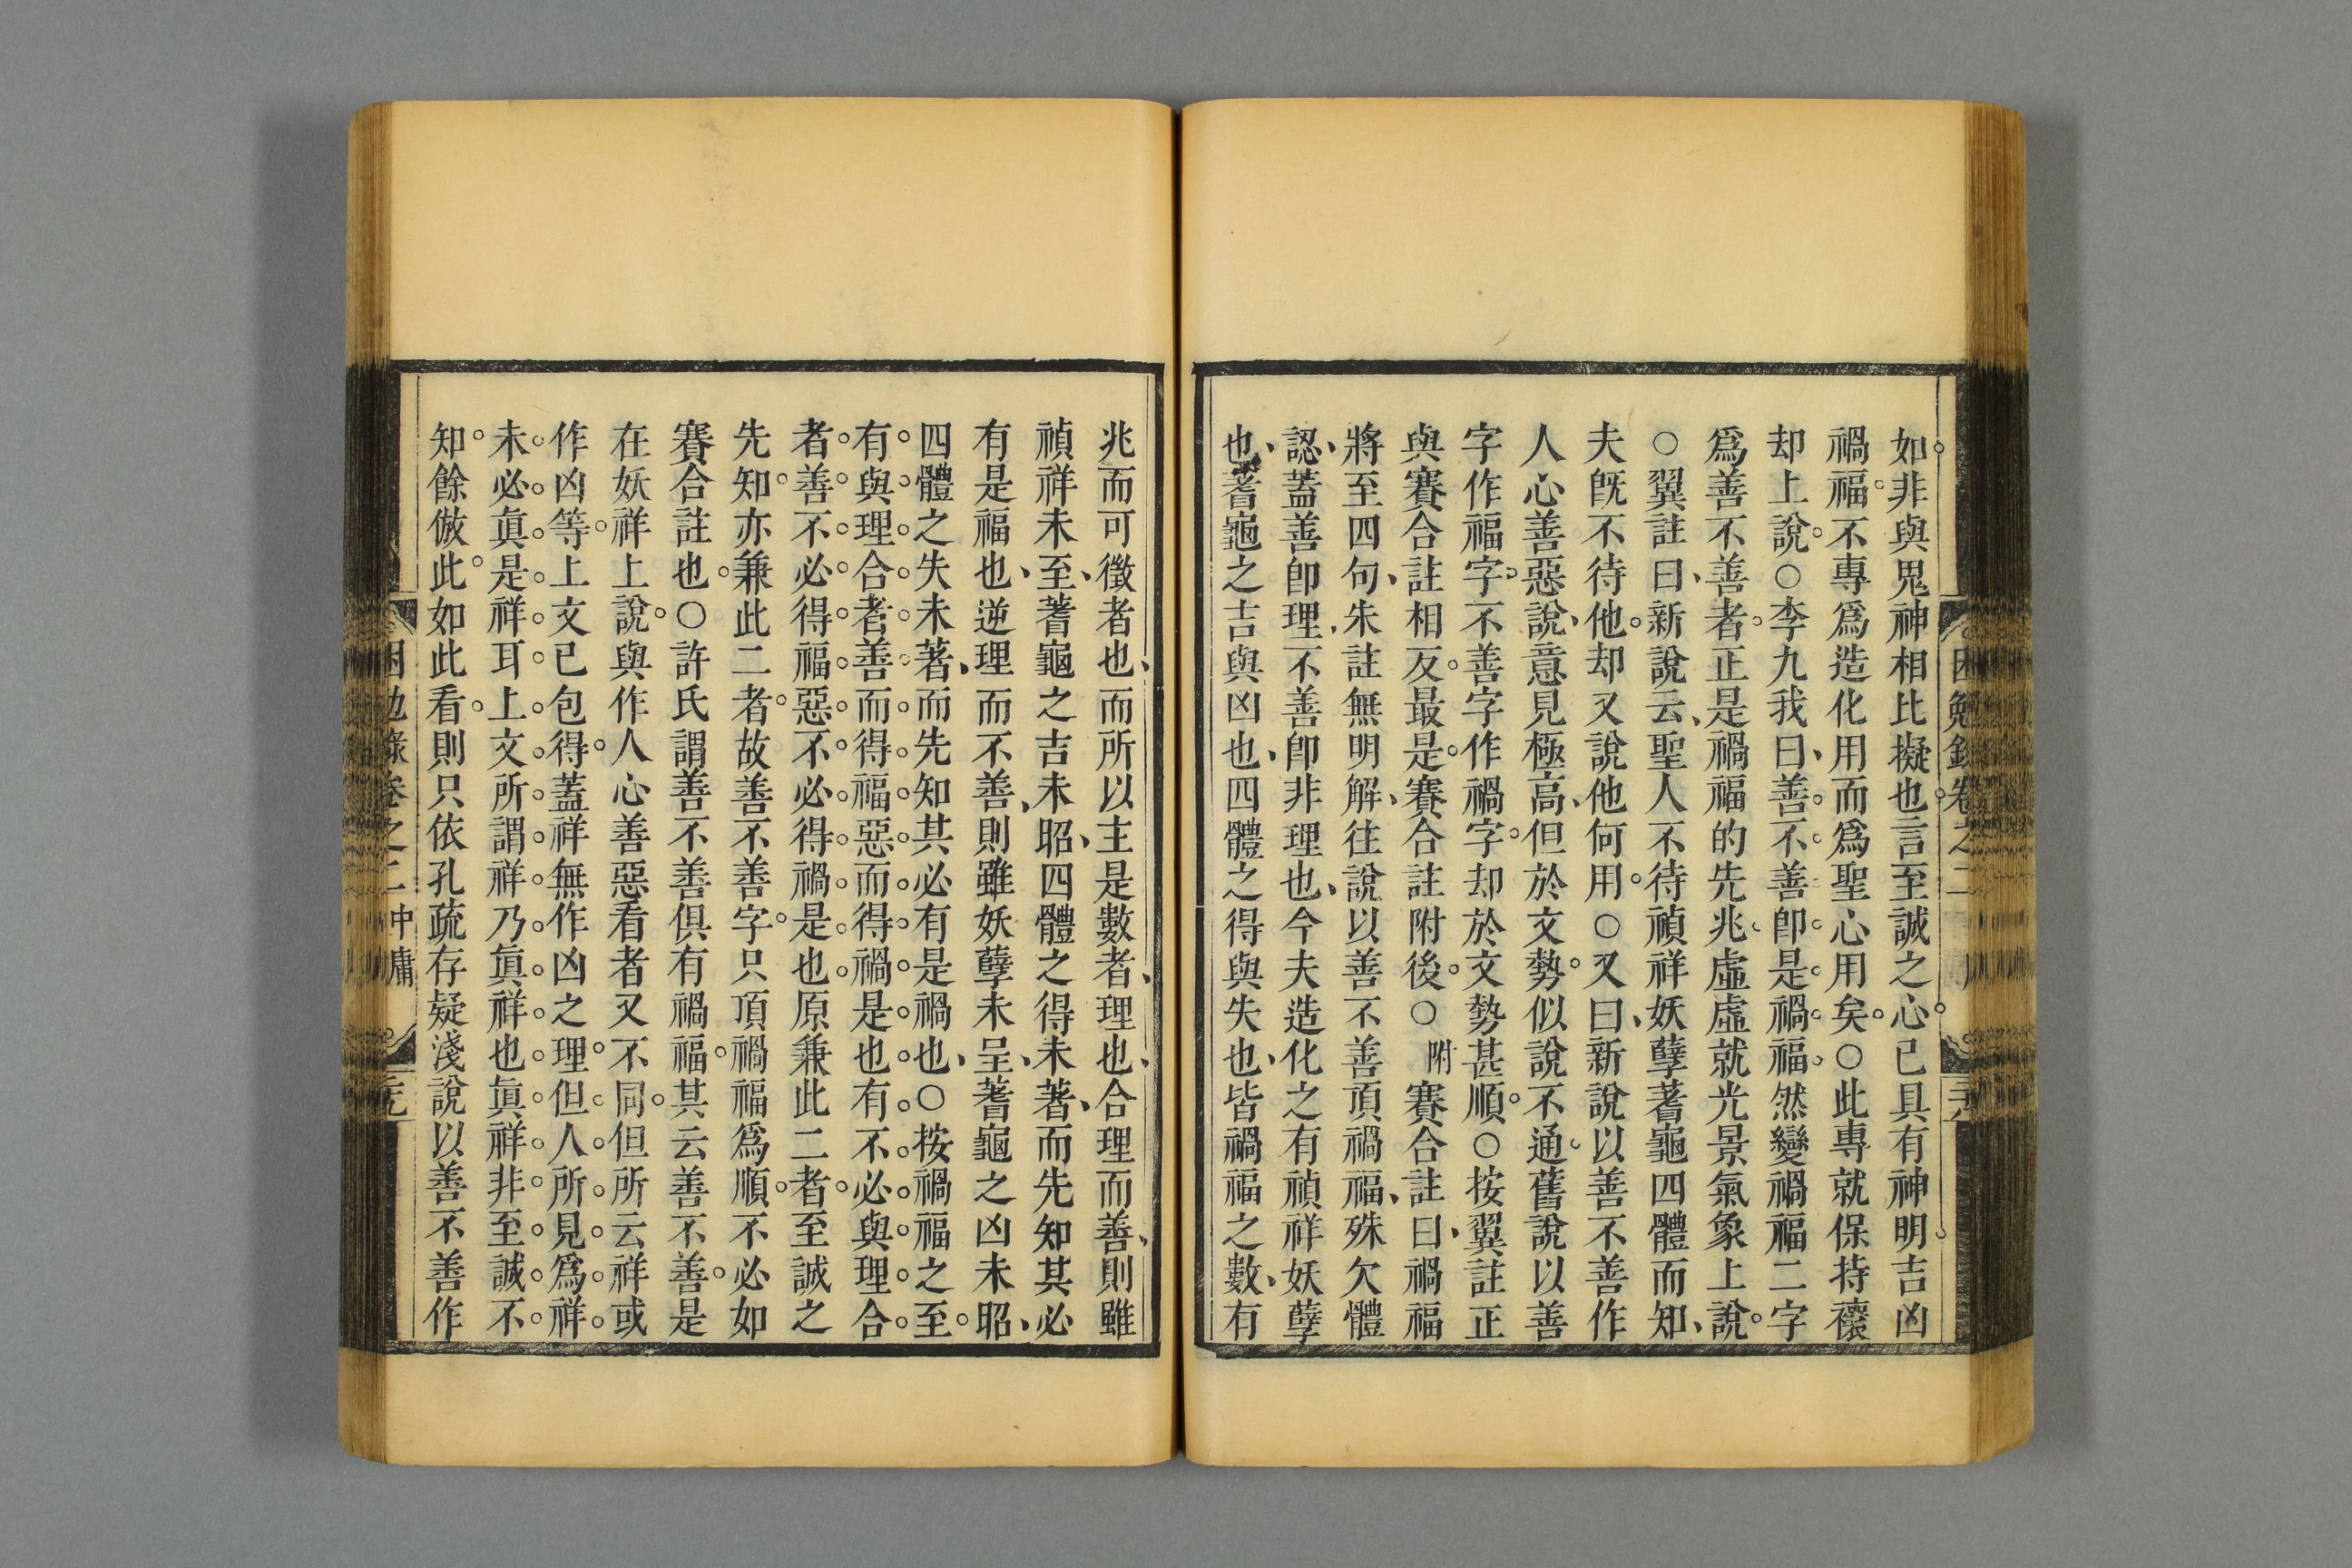 如非與鬼神相比擬也言至誠之心已具有神明吉凶
禍福不專爲造化用而爲聖心用矣○此專就保持禳
却上說○李九我曰善不善卽是禍福然變禍福二字
爲善不善者正是禍福的先兆虛虛就光景氣象上說
○翼註曰新說云聖人不待禎祥妖孽蓍龜四體而知
夫旣不待他却又說他何用○又曰新說以善不善作
人心善惡說意見極高但於文勢似說不通舊說以善
字作福字不善字作禍字却於文勢甚順○按翼註正
與賽合註相反最是賽合註附後○附賽合註曰禍福
將至四句朱註無明解往說以善不善頂禍福殊欠體
認蓋善卽理不善卽非理也今夫造化之有禎祥妖孽
也蓍龜之吉與凶也四體之得與失也皆禍福之數有
兆而可徵者也而所以主是數者理也合理而善則雖
禎祥未至蓍龜之吉未昭四體之得未著而先知其必
有是福也逆理而不善則雖妖孽未呈蓍龜之凶未昭
四體之失未著而先知其必有是禍也○按禍福之至
有與理合者善而得福惡而得禍是也有不必與理合
者善不必得福惡不必得禍是也原兼此二者至誠之
先知亦兼此二者故善不善字只頂禍福爲順不必如
賽合註也○許氏謂善不善俱有禍福其云善不善是
在妖祥上說與作人心善惡看者又不同但所云祥或
作凶等上文已包得蓋祥無作凶之理但人所見爲祥
未必眞是祥耳上文所謂祥乃眞祥也眞祥非至誠不
知餘倣此如此看則只依孔疏存疑淺說以善不善作
困勉錄卷之二 中庸 二九